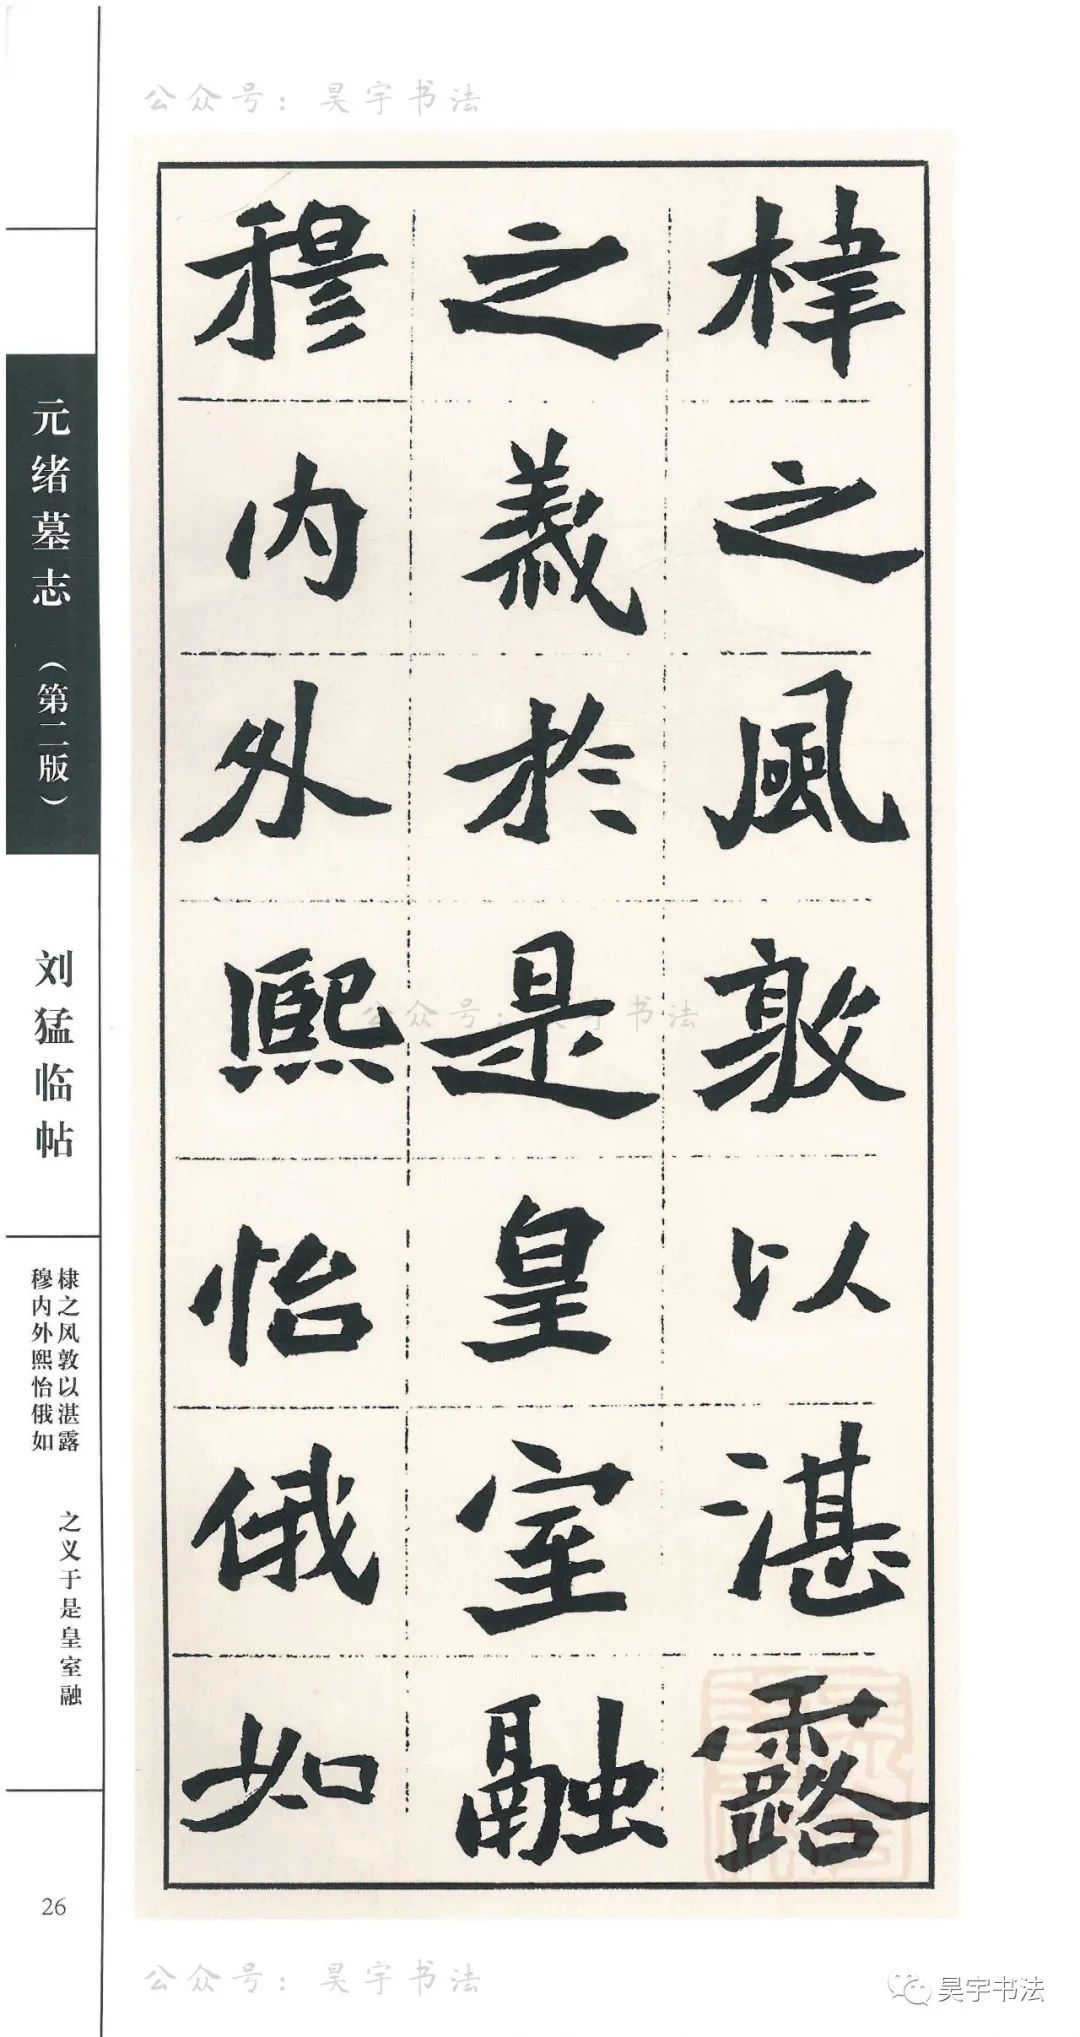 公众号：昊宇书法
棣之風敦以湛露
之義於是皇室融
穆内外熙怡俄如
公众号：昊宇书法
元绪墓志（第二版）
刘猛临帖
棣之风敦以湛露
之义于是皇室融
穆内外熙怡俄如
26
公众号：昊宇书法
昊宇书法